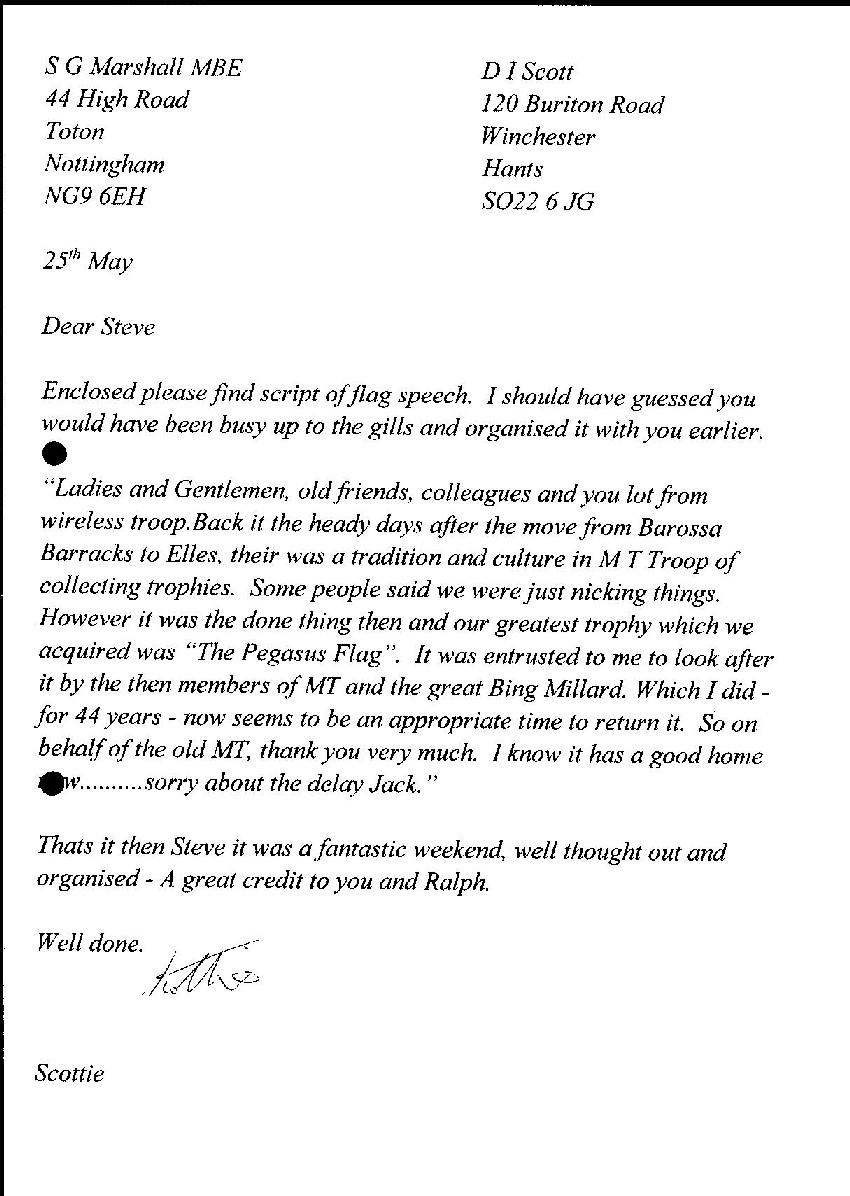 S G Marshall MBE
44 High Road
Toton
Nottingham
NG9 6EH
D I Scott
120 Buriton Road
Winchester
Hants
SO22 6 JG
25th May
Dear Steve
Enclosed please find script of flag speech. I should have guessed you
would have been busy up to the gills and organised it with you earlier.
“Ladies and Gentlemen, old friends, colleagues and you lot from
wireless troop.Back it the heady days after the move from Barossa
Barracks to Elles, their was a tradition and culture in M T Troop of
collecting trophies. Some people said we were just nicking things.
However it was the done thing then and our greatest trophy which we
acquired was “The Pegasus Flag”. It was entrusted to me to look after
it by the then members of MT and the great Bing Millard. Which I did -
for 44 years - now seems to be an appropriate time to return it. So on
behalf of the old MT, thank you very much. I know it has a good home
w..........sorry about the delay Jack.”
Thats it then Steve it was a fantastic weekend, well thought out and
organised - A great credit to you and Ralph.
Well done.
Scottie